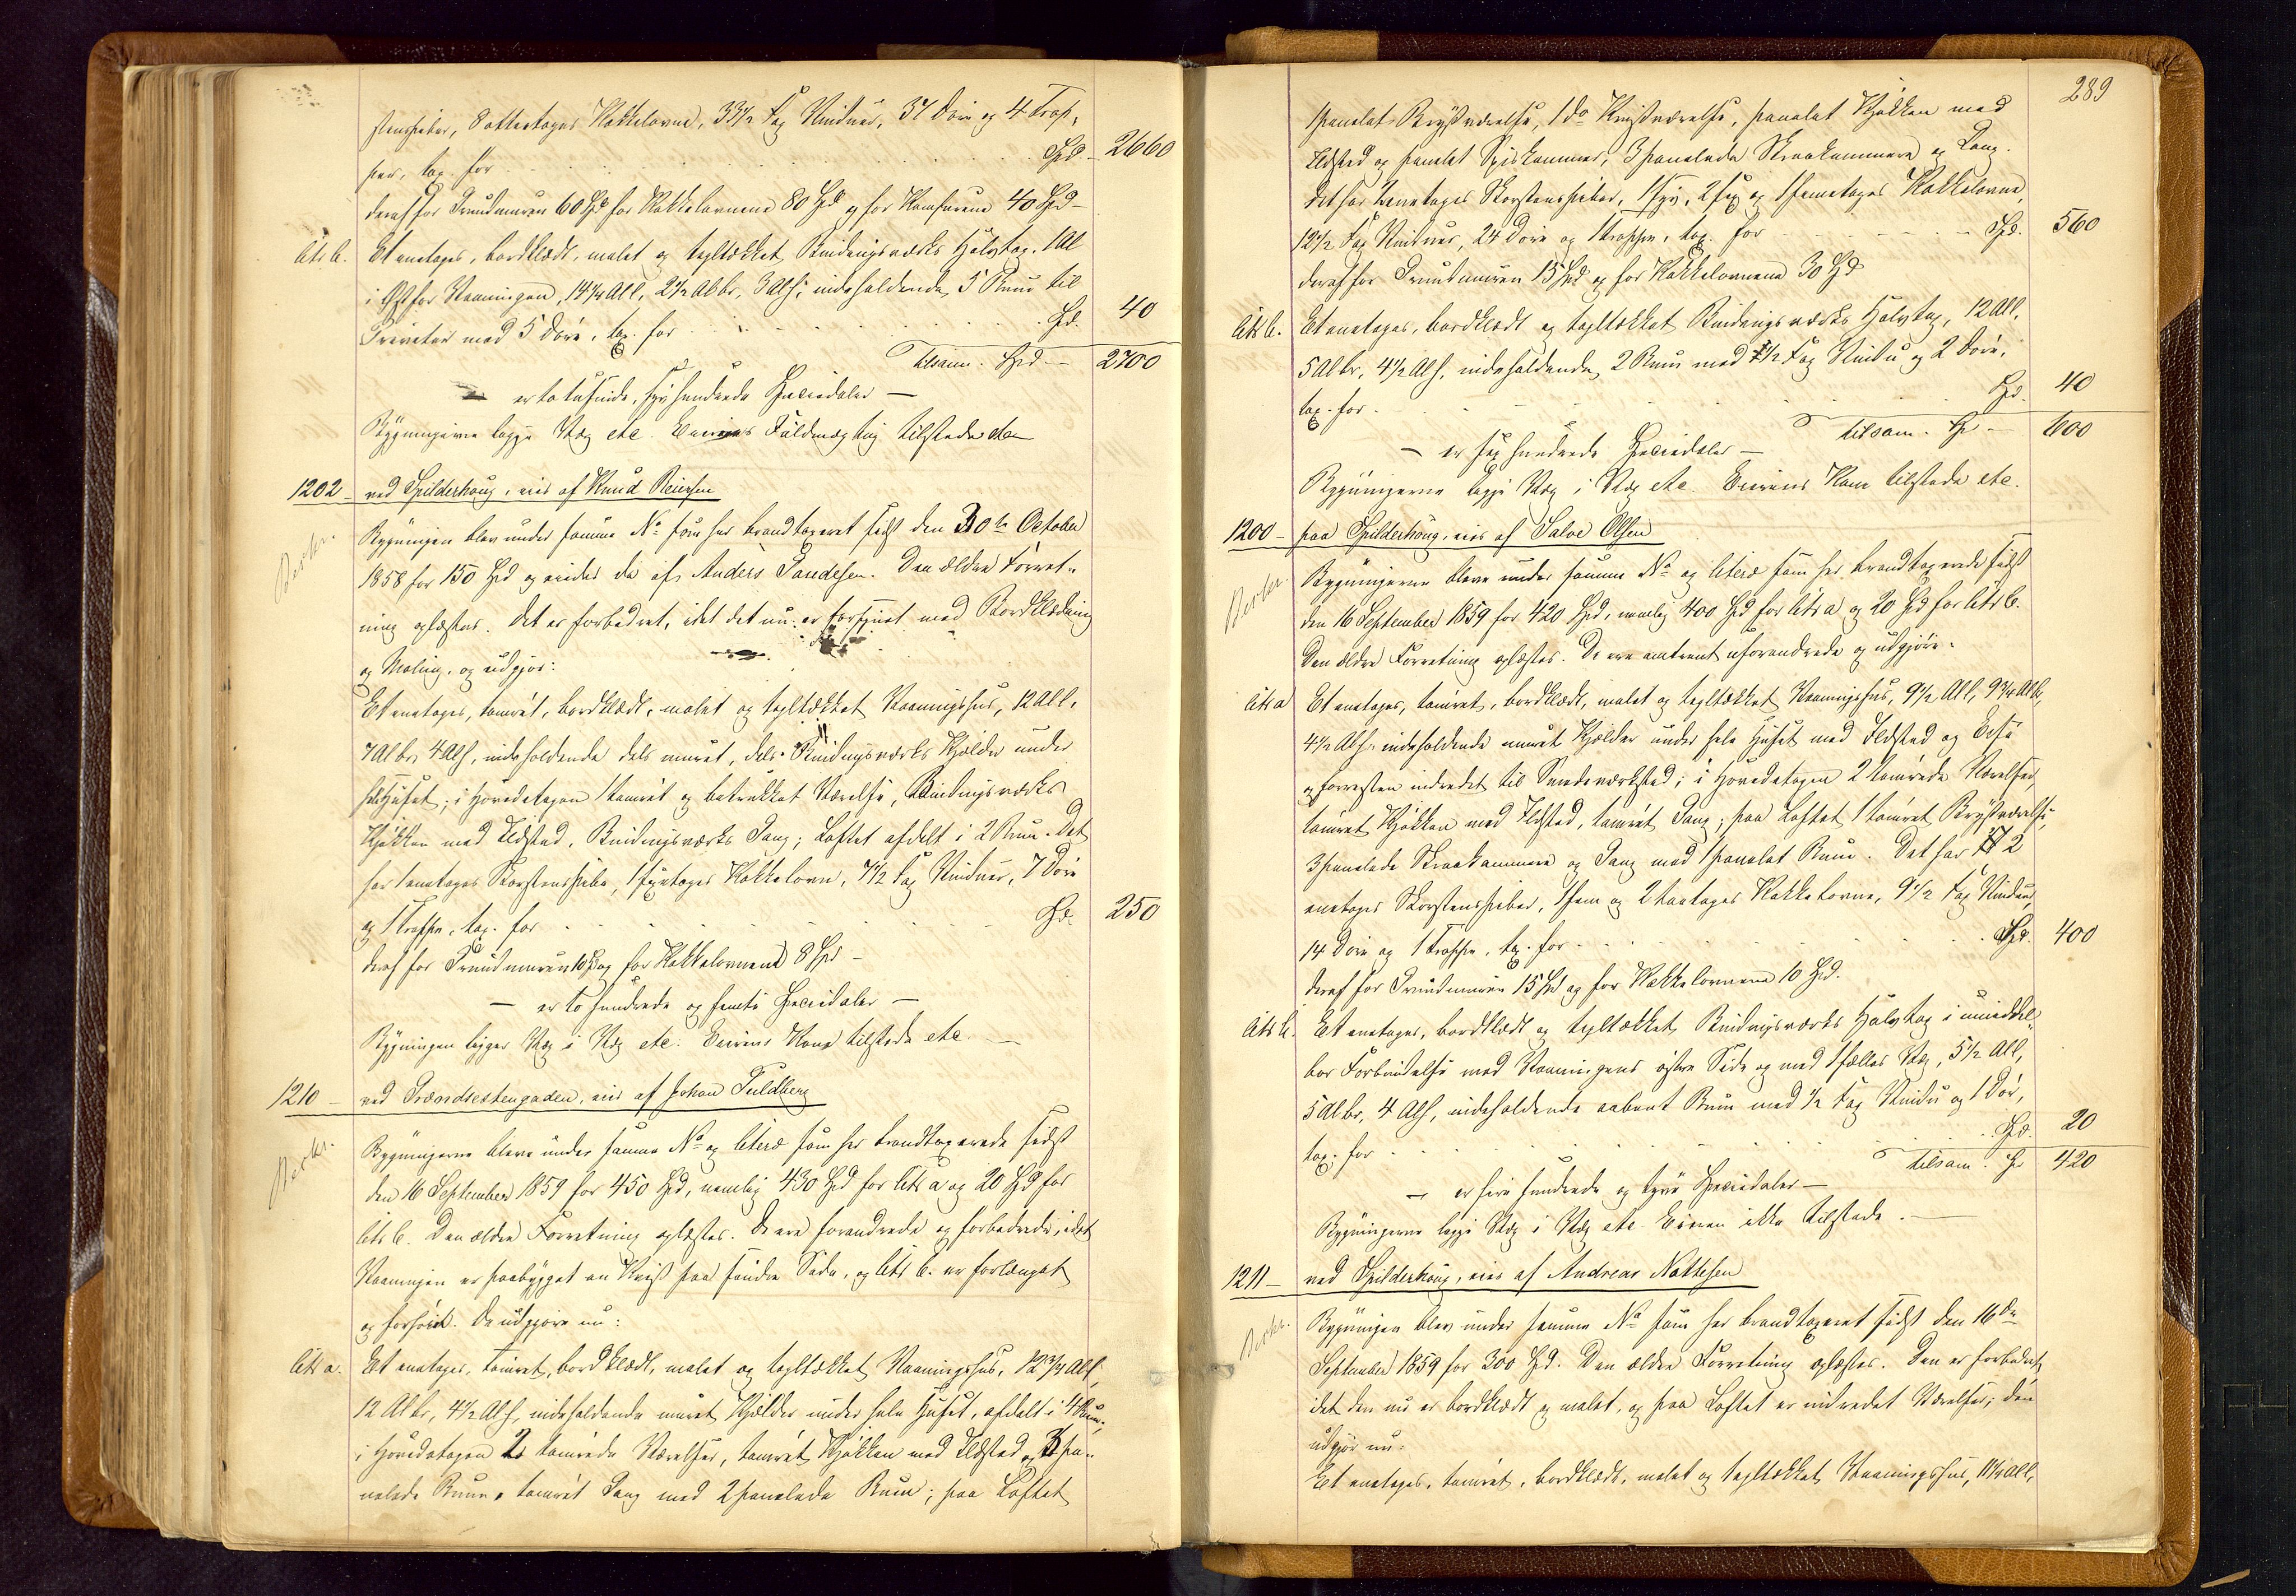 stenspiber, 8 ottetages Kakkelovne, 33 1/2 Fag Vinduer, 37 Døre og 4 Trap-
per, tax. for . . . Spd. 2660
deraf for Grundmuren 60 Spd for Kakkelovnene 80 Spd og for Komfurene 40 Spd –
Litr b. Et enetages, bordklædt, malet og tegltækket Bindingsværks Halvtag, 1 Al
i Øst for Vaaningen, 14 1/4 All, 2 1/2 Albr, 3 Alh, indeholdende 5 Rum til
Priveter med 5 Døre, tax. for . . . Spd. 40
tilsam. Spd. – 2700
er to tusinde, syvhundrede Speciedaler –
Bygningerne ligge Væg etc. Eierens Fuldmægtig tilstede etc
1202 – ved Spilderhoug, eies af Knud Reiersen
Beskr. Bygningen blev under samme No som her brandtaxeret sidst den 30te October
1858 for 150 Spd og eiedes da af Anders Tandesen. Den ældre Forret-
ning oplæstes. Det er forbedret, idet det nu er forsynet med Bordklædning
og Maling, og udgjør:
Et enetages, tømret, bordklædt, malet og tegltækket Vaaningshus, 12 All,
7 Albr, 4 Alh, indeholdende dels muret, dels Bindingsværks Kjælder under
hele Huset; i Hovedetagen 1 tømret og betrukket Værelse, Bindingsværks
Kjøkken med Ildsted, Bindingsværks Gang; Loftet afdelt i 2 Rum. Det
har 1 enetages Skorstenspibe, 1 syvetages Kakkelovn, 7 1/2 Fag Vinduer, 7 Døre
og 1 Trappe, tax. for . . . Spd. 250
deraf for Grundmuren 10 Spd og for Kakkelovnene 8 Spd –
– er to hundrede og femti Speciedaler –
Bygningen ligger Væg i Væg etc. Eierens Kone tilstede etc. –
1210 – ved Grændsestengaden, eies af Johan Guldberg
Beskr. Bygningerne bleve under samme No og literæ som her brandtaxerede sidst
den 16 September 1859 for 450 Spd, nemlig 430 Spd for litr a og 20 Spd for
litr b. Den ældre Forretning oplæstes. De ere forandrede og forbedrede, idet
Vaaningen er paabygget en Kvist paa søndre Side, og litr b. er forlænget
og forhøiet. De udgjøre nu:
Litr a. Et enetages, tømret, bordklædt, malet og tegltækket Vaaningshus, 12 3/4 All,
12 Albr, 4 1/2 Alh, indeholdende muret Kjælder under hele Huset, afdelt i 4 Rum;
i Hovedetagen 2 tømrede Værelser, tømret Kjøkken med Ildsted, 3 pa-
nelede Rum, tømret Gang med 2 panelede Rum; paa Loftet
289
1 panelet Brystværelse, 1 do Kvistværelse, panelet Kjøkken med
Ildsted og panelet Spiskammer, 3 panelede Skraakammere og Gang.
Det har 2 enetages Skorstenspiber, 1 syv, 2 sex og 1 femetages Kakkelovne,
12 1/2 Fag Vinduer, 24 Døre og 1 Trappe, tax. for . . . Spd. 560
deraf for Grundmuren 15 Spd og for Kakkelovnene 30 Spd
Litr b. Et enetages, bordklædt og tegltækket Bindingsværks Halvtag, 12 All,
5 Albr, 4 1/2 Alh, indeholdende 2 Rum med 1/2 Fag Vindu og 2 Døre,
tax. for . . . Spd. 40
tilsam. Spd – 600
– er sex hundrede Speciedaler –
Bygningerne ligge Væg i Væg etc. Eierens Kone tilstede etc.
1200 – paa Spilderhoug, eies af Salve Olsen
Beskr. Bygningerne bleve under samme No og literæ som her brandtaxerede sidst
den 16 September 1859 for 420 Spd, nemlig 400 Spd for litr a og 20 Spd for litr b.
Den ældre Forretning oplæstes. De ere omtrent uforandrede og udgjøre:
Litr a Et enetages, tømret, bordklædt, malet og tegltækket Vaaningshus, 9 1/2 All, 9 3/4 Albr,
4 1/2 Alh, indeholdende muret Kjælder under hele Huset med Ildsted og Esse
og forresten indredet til Smedeværksted; i Hovedetagen 2 tømrede Værelser,
tømret Kjøkken med Ildsted, tømret Gang; paa Loftet 1 tømret Brystværelse,
3 panelede Skraakammere og Gang med 1 panelet Rum. Det har 2
enetages Skorstenspiber, 1 fem og 2 toetages Kakkelovne, 9 1/2 Fag Vinduer,
14 Døre og 1 Trappe, tax. for . . . Spd. 400
deraf for Grundmuren 15 Spd og for Kakkelovnene 10 Spd.
Litr b. Et enetages, bordklædt og tegltækket Bindingsværks Halvtag i umiddel-
bar Forbindelse med Vaaningens østre Side og med 1 fælles Væg, 5 1/2 All,
5 Albr, 4 Alh, indeholdende aabent Rum med 1/2 Fag Vindu og 1 Dør,
tax. for . . . Spd. 20
tilsam. Spd 420
– er fire hundrede og tyve Speciedaler –
Bygningerne ligge Væg i Væg etc. Eieren ikke tilstede. –
1211 – ved Spilderhoug, eies af Andreas Nattesen
Beskr. Bygningen blev under samme No som her brandtaxeret sidst den 16de
September 1859 for 300 Spd. Den ældre Forretning oplæstes. Den er forbedret,
idet den nu er bordklædt og malet, og paa Loftet er indredet Værelser; den
udgjør nu:
Et enetages, tømret, bordklædt, malet og tegltækket Vaaningshus, 11 1/4 All,